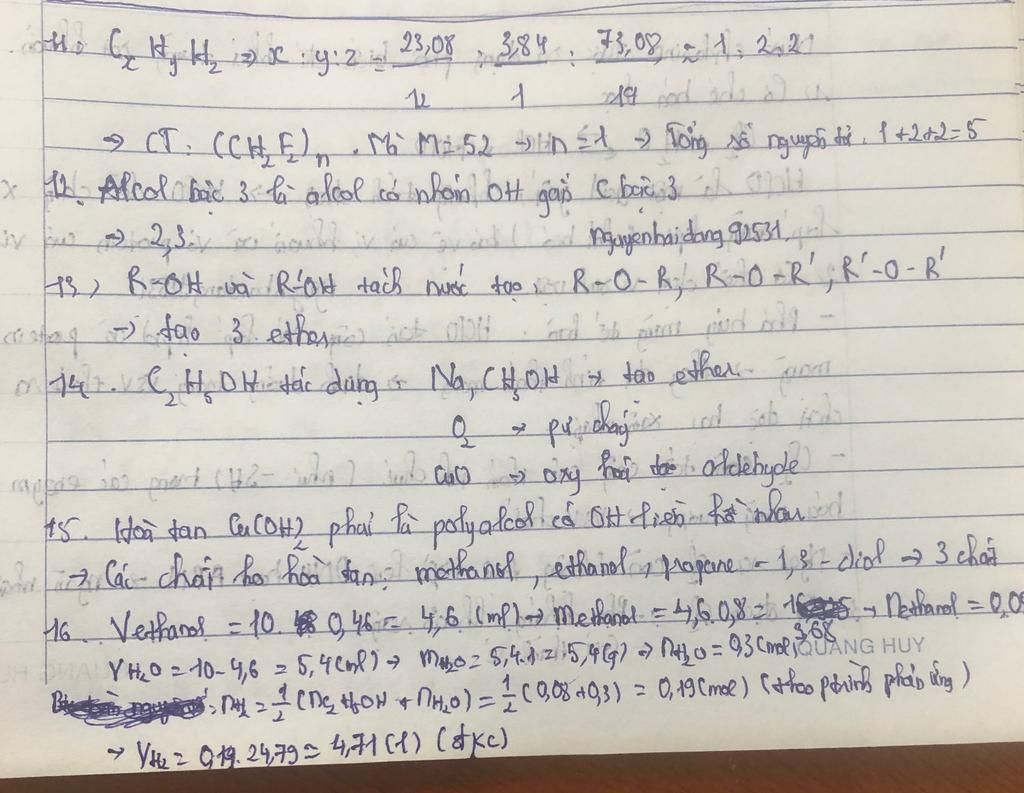 11. CxHyHz => x : y : z = 23,08/12 : 3,84/1 : 73,08/19 = 1 : 2 : 2
→ CT : (CH2F2)n . Mà M = 52 → n = 1 → Tổng số nguyên tử. 1+2+2=5
12. Alcol bậc 3 là alcol có nhóm OH gắn C bậc 3
→ 2,3. nguyenhaidang92531.
13, R-OH và R'-OH tách nước tạo. R-O-R, R-O-R', R'-O-R'
→ tạo 3 ether.
14. C2H5OH tác dụng - Na, CH3OH → tạo ether
O2 → pư cháy
CuO → oxy hoá aldehyde
15. Hoà tan Cu(OH)2 phải là polyalcol có OH liền kề nhau
→ Các chất ko hoà tan: methanol, ethanol, propane-1,3-diol → 3 chất
16. Vethanol = 10. 0,46 = 4,6 (ml) → methanol = 4,6.0,8 = 3,68 → nethanol = 0,08
VH2O = 10-4,6 = 5,4(ml) → mH2O = 5,4.1 = 5,4(g) → nH2O = 0,3(mol) QUANG HUY
: nH2 = 1/2 (nC2H5OH + nH2O) = 1/2 (0,08+0,3) = 0,19(mol) (theo ptrình phản ứng)
→ VH2 = 0,19.24,79 = 4,71(l) (đkc)